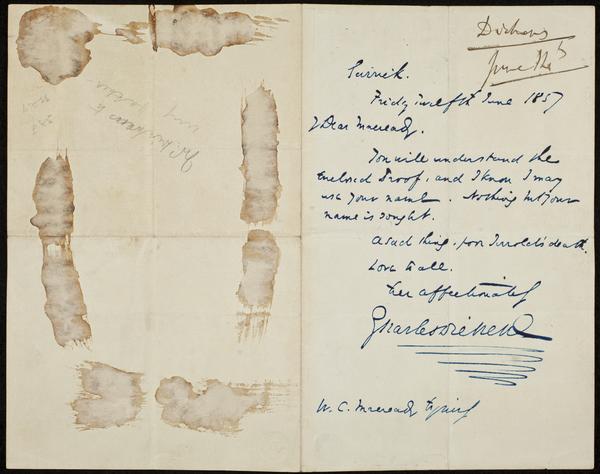 Dickens
June 12th
Garrick.
Friday Twelfth June 1857
My Dear Macready.
You will understand the
enclosed Proof, and I know I may
use your name. Nothing but your
name is sought.
A sad thing, poor Jerrold's death.
Love to all.
Ever affectionately
Charles Dickens
W. C. Macready Esquire